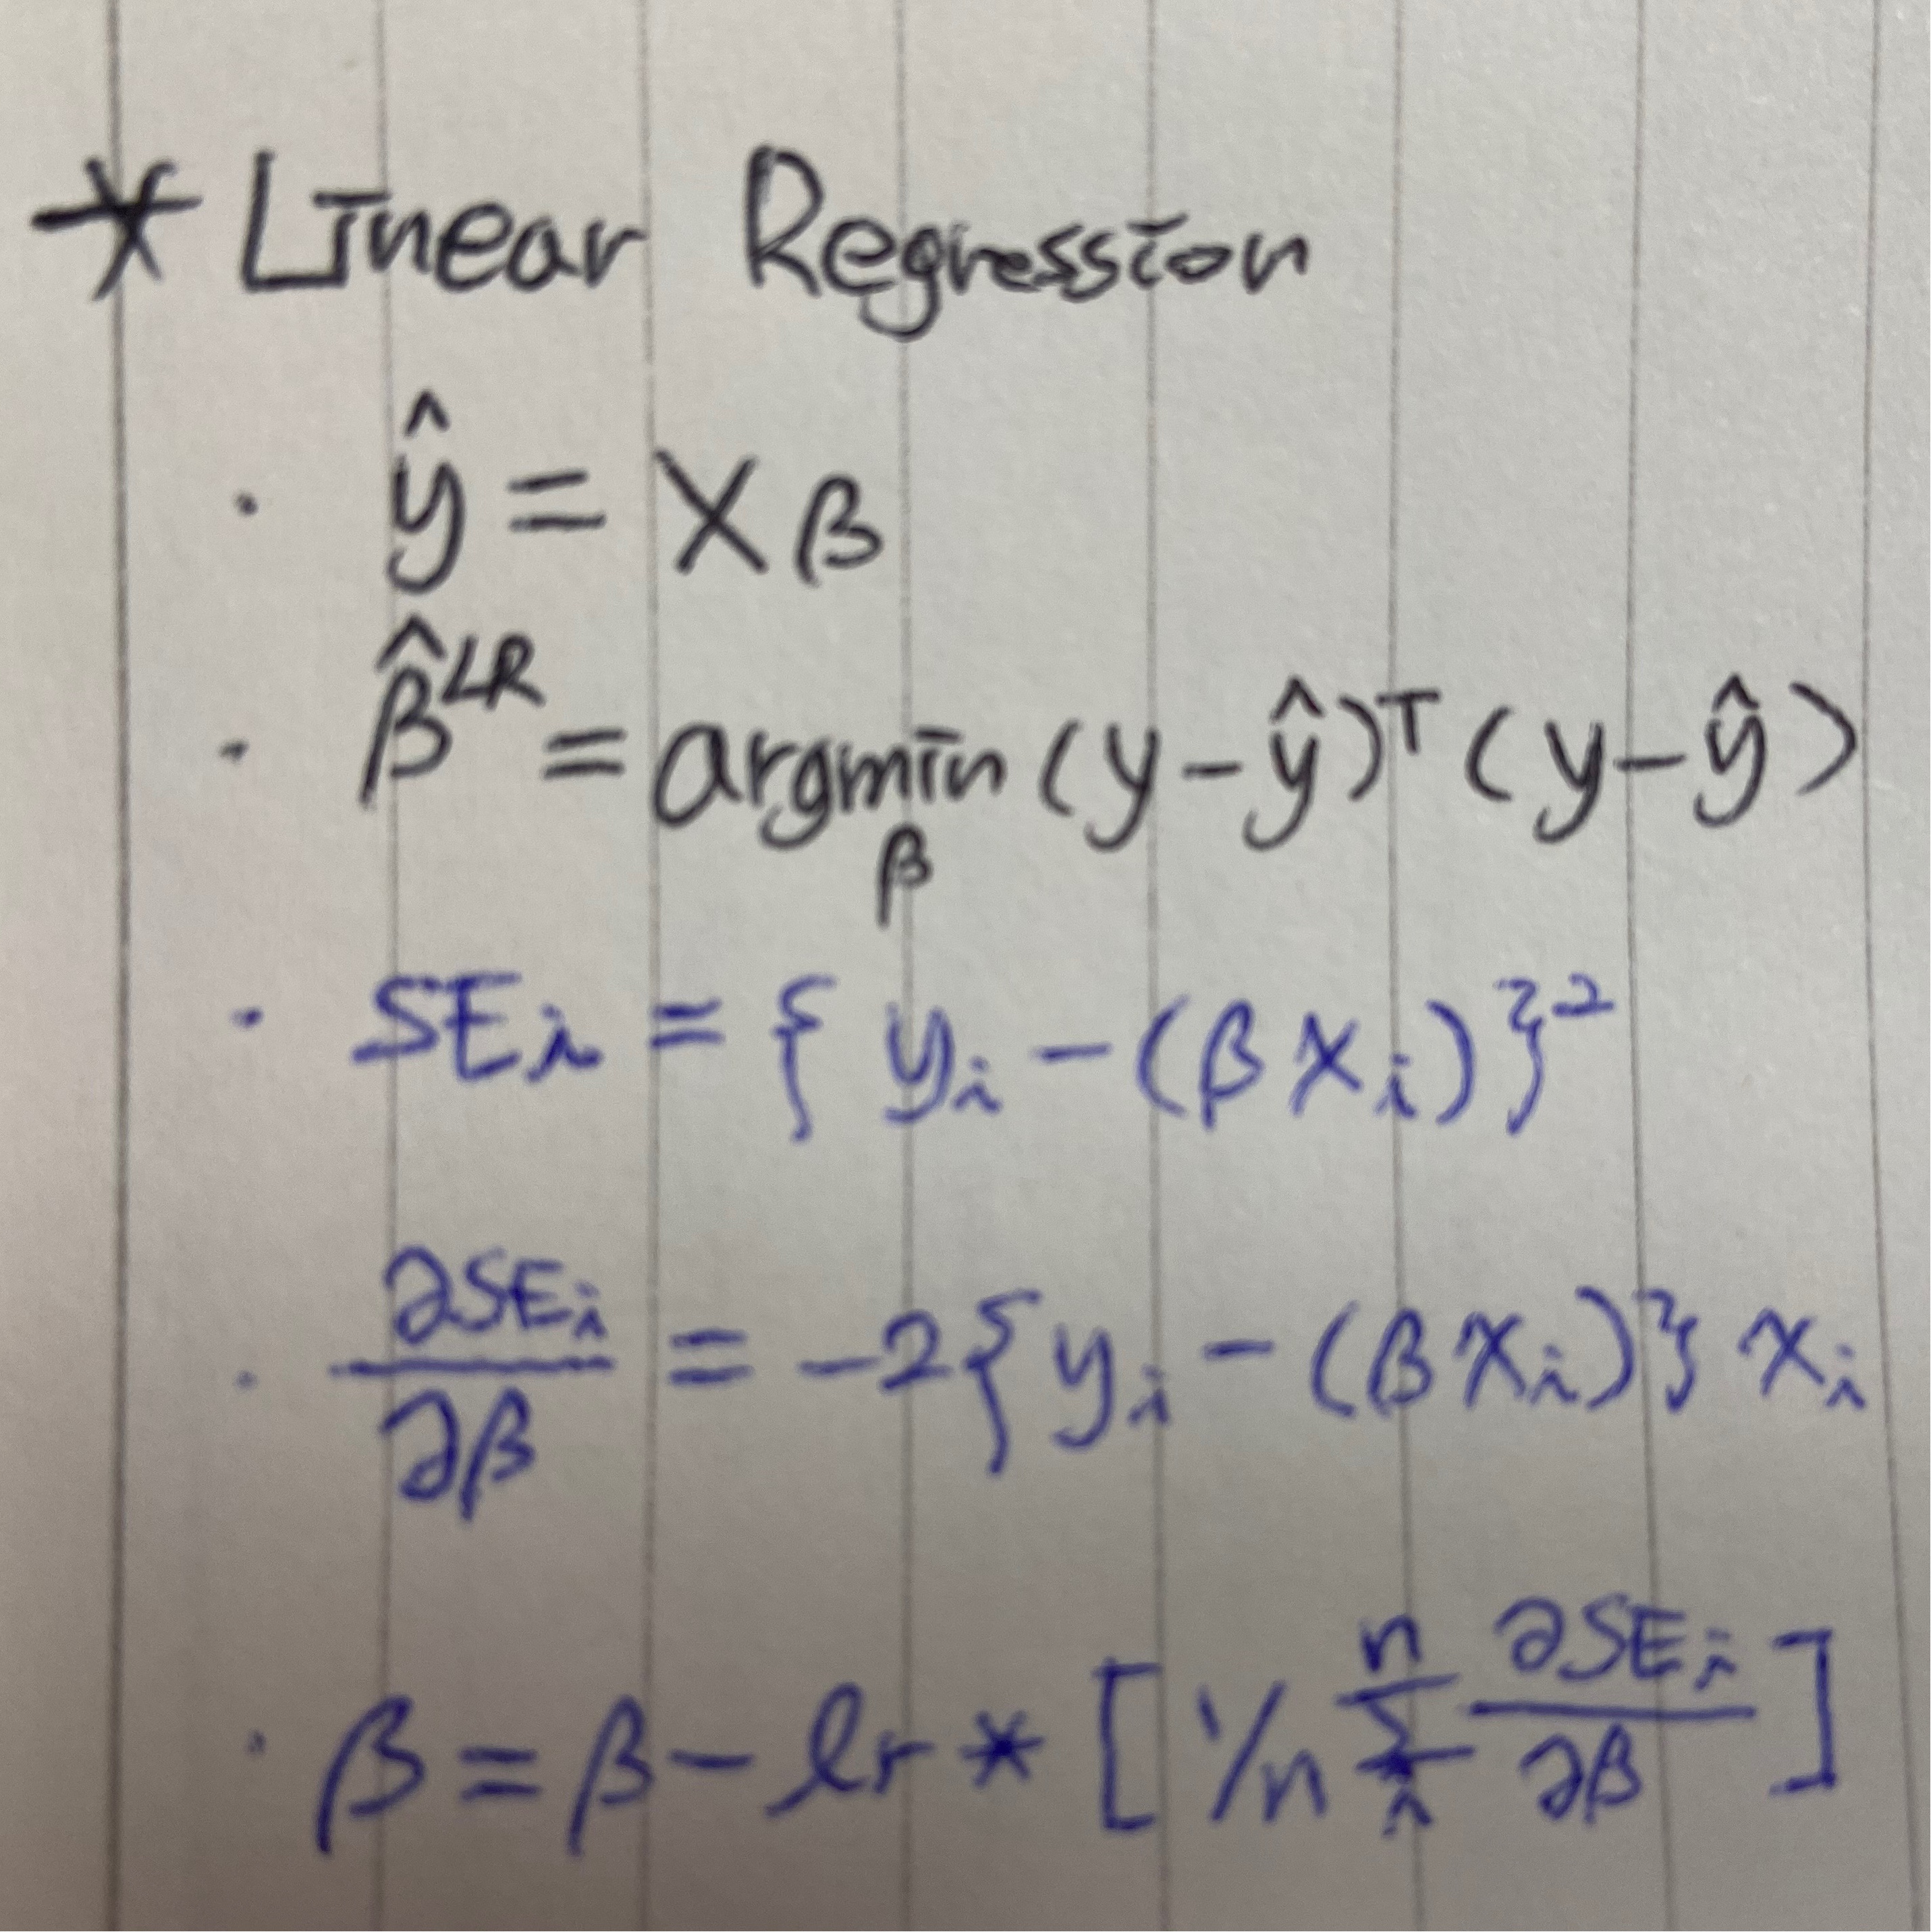 * Linear Regression
· ŷ = Xβ
· β̂^LR = argmin_β (y - ŷ)^T (y - ŷ)
· SE_i = { y_i - (β x_i) }^2
· ∂SE_i / ∂β = -2 { y_i - (β x_i) } x_i
· β = β - lr * [ 1/n Σ_i^n ∂SE_i / ∂β ]